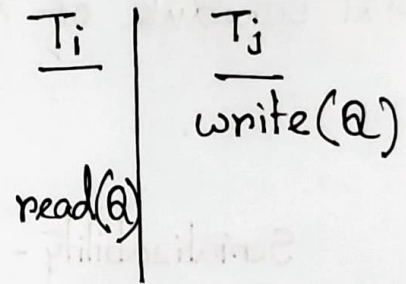 Ti Tj
write(Q)
read(Q)